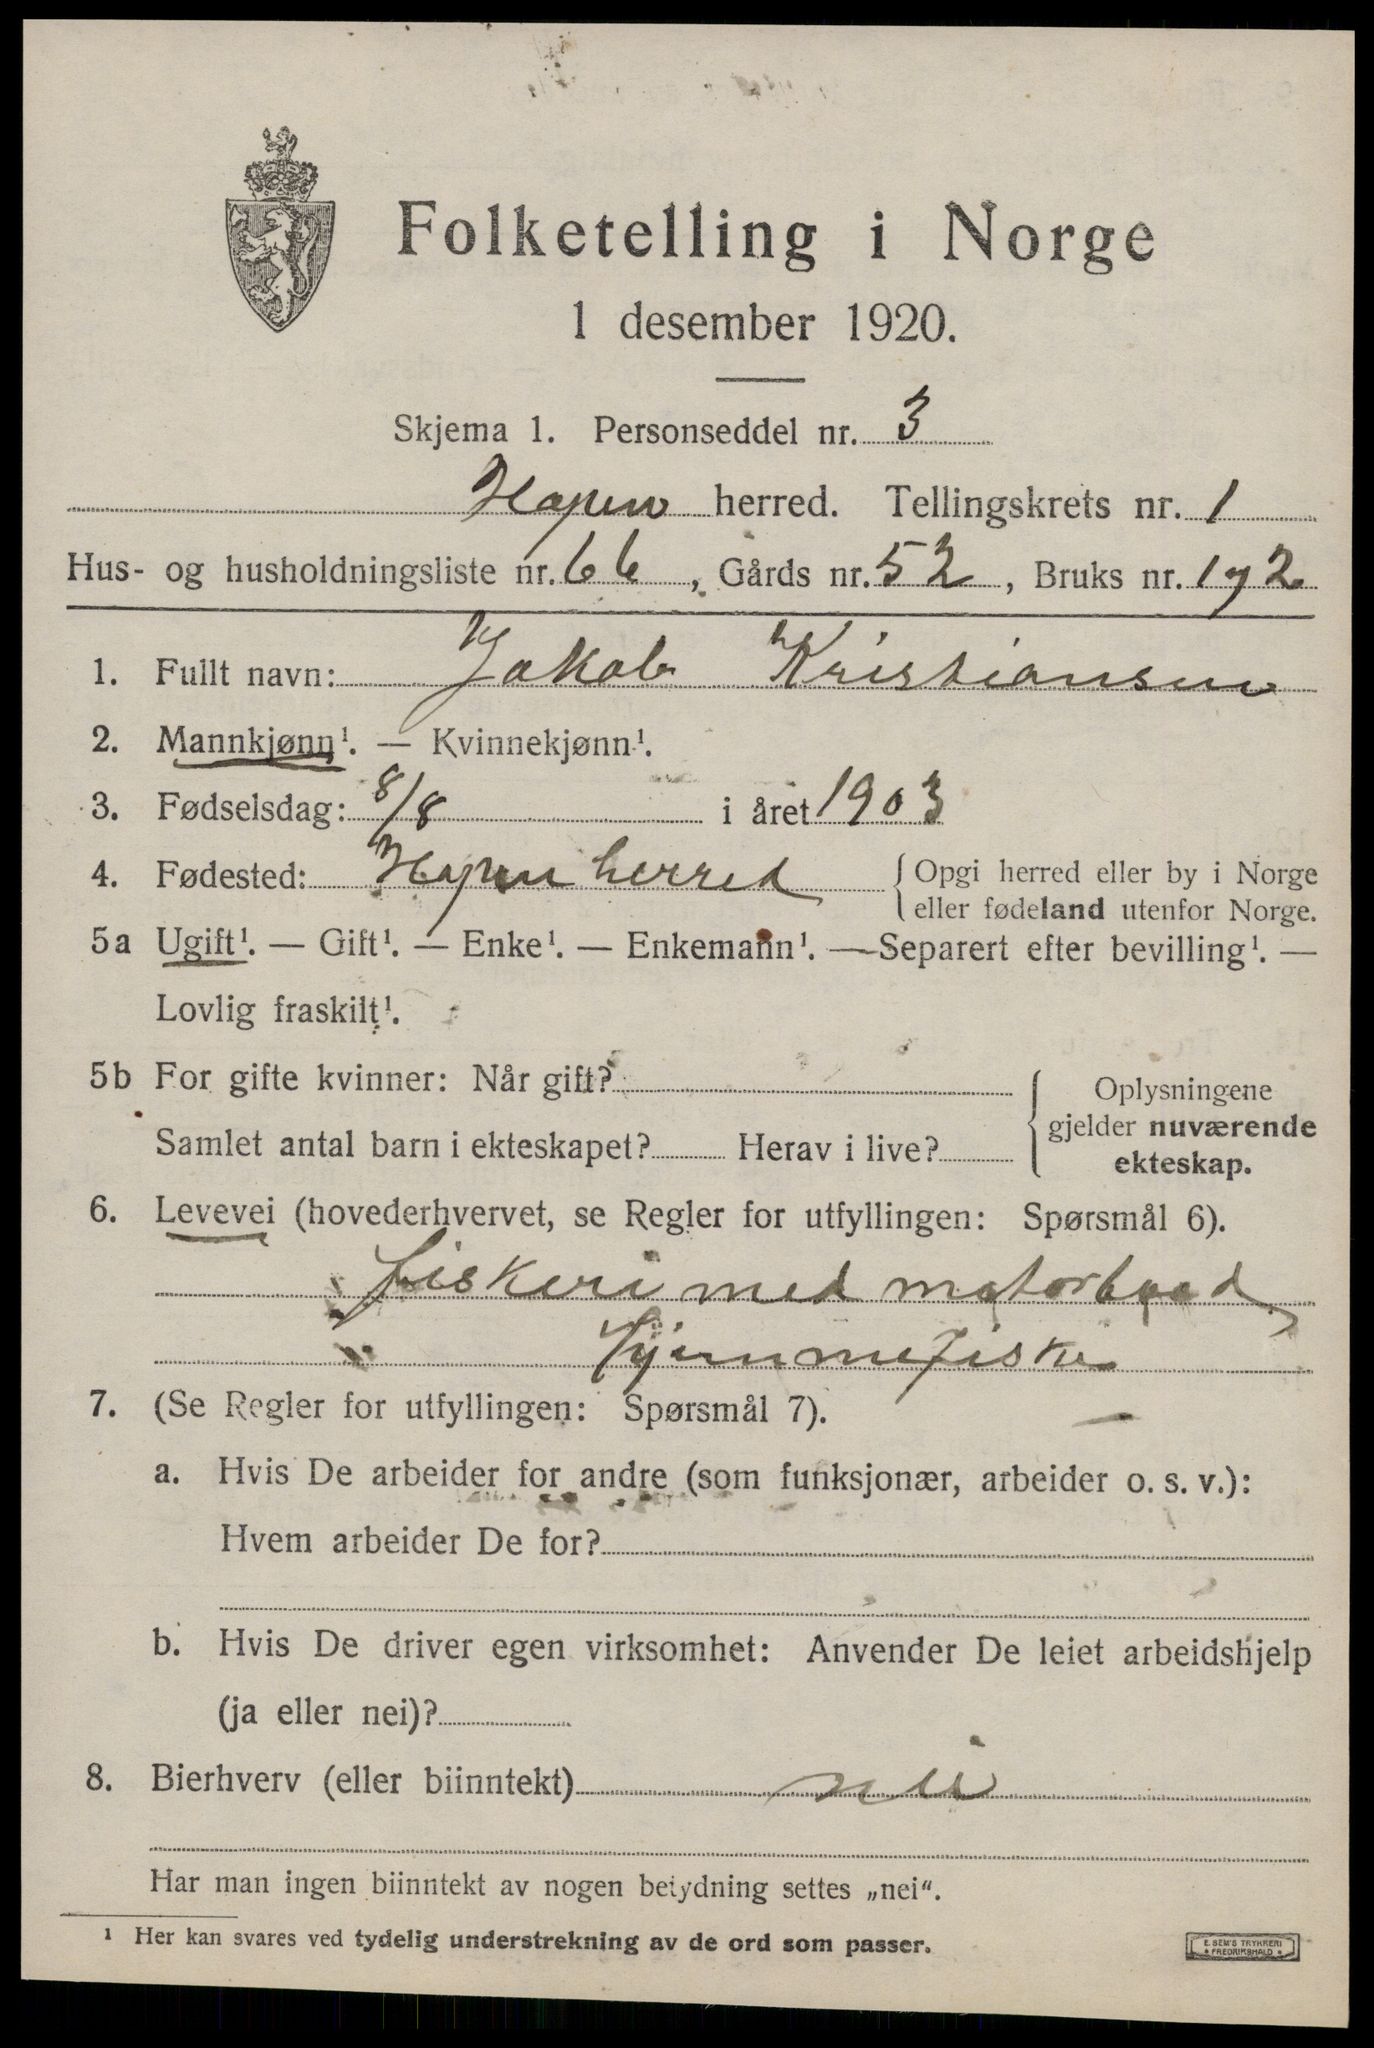 Folketelling i Norge
1 desember 1920.
Skjema 1. Personseddel nr. 3
herred. Tellingskrets nr. 1
Hus- og husholdningsliste nr. 66, Gårds nr. 52, Bruks nr. 172
1. Fullt navn: Jakob Kristiansen
2. Mannkjønn¹. — Kvinnekjønn¹.
3. Fødselsdag: 8/8 i året 1903
4. Fødested: herred { Opgi herred eller by i Norge
eller fødeland utenfor Norge.
5a Ugift¹. — Gift¹. — Enke¹. — Enkemann¹. — Separert efter bevilling¹. —
Lovlig fraskilt¹.
5b For gifte kvinner: Når gift?
Samlet antal barn i ekteskapet? Herav i live?
{ Oplysningene
gjelder nuværende
ekteskap.
6. Levevei (hovederhvervet, se Regler for utfyllingen: Spørsmål 6).
fiskeri med motorbaad
Hjemmefiske
7. (Se Regler for utfyllingen: Spørsmål 7).
a. Hvis De arbeider for andre (som funksjonær, arbeider o. s. v.):
Hvem arbeider De for?
b. Hvis De driver egen virksomhet: Anvender De leiet arbeidshjelp
(ja eller nei)?
8. Bierhverv (eller biinntekt) nei
Har man ingen biinntekt av nogen betydning settes „nei“.
¹ Her kan svares ved tydelig understrekning av de ord som passer.
E. SEM'S TRYKKERI
* FREDRIKSHALD *